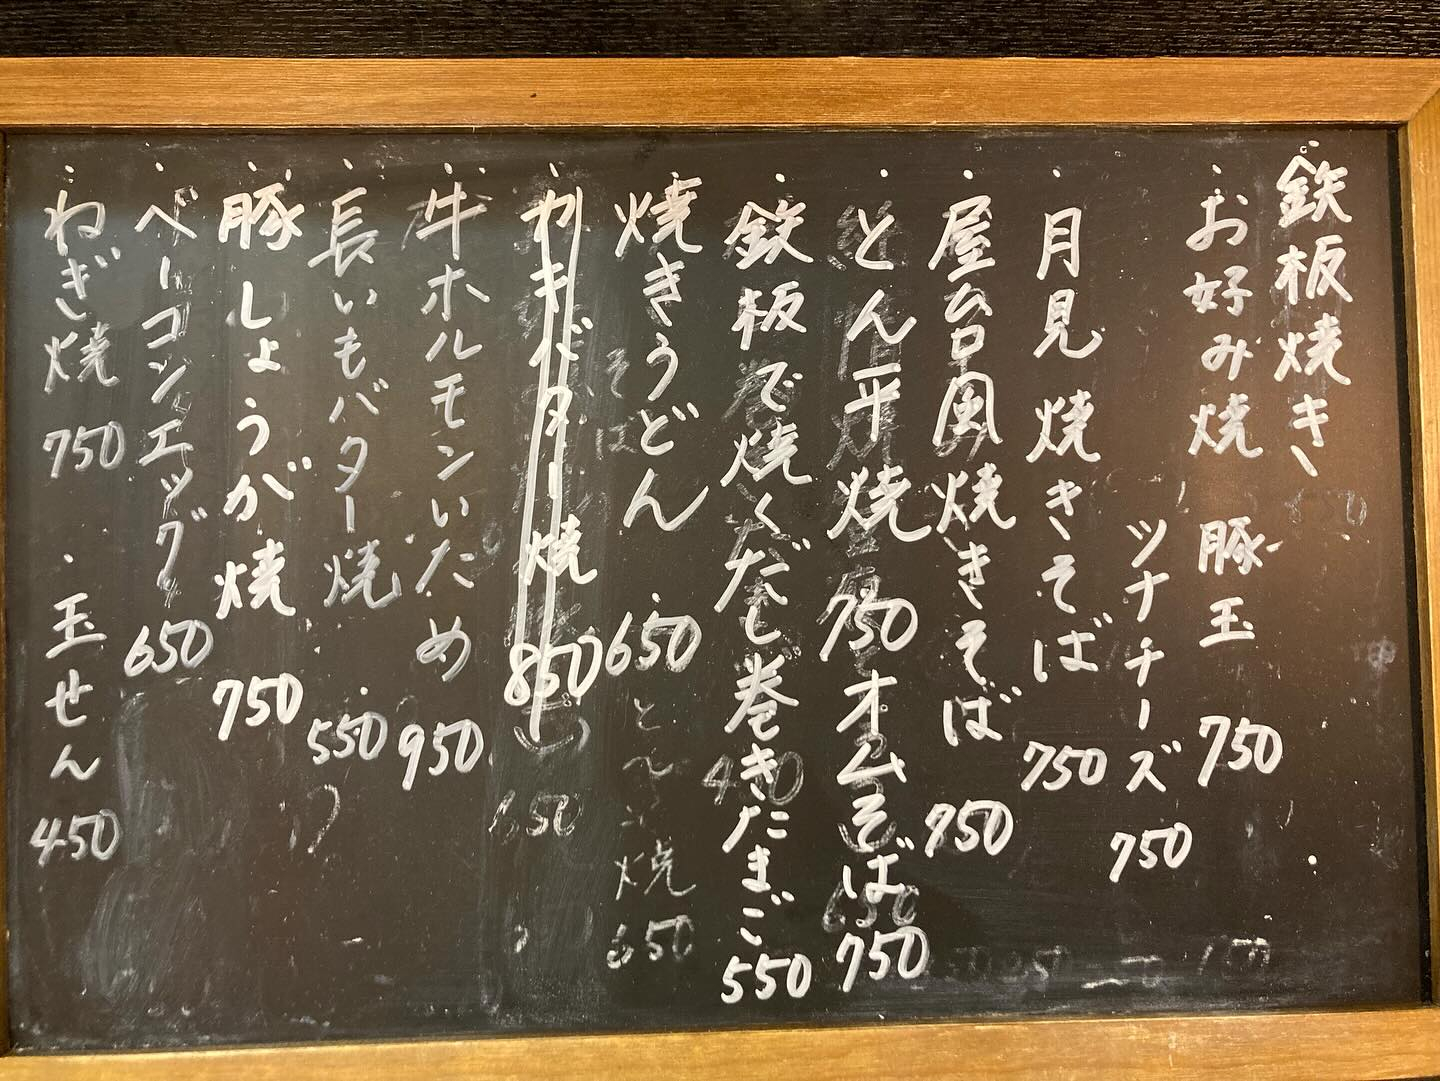 鉄板焼き
・お好み焼 豚玉 750
ツナチーズ 750
・月見焼きそば 750
屋台風焼きそば 950
・とん平焼 750 オムそば 750
・鉄板で焼くだし巻きたまご 550
・焼きうどん ・650
・カキバター焼 850
・牛ホルモンいため 950
・長いもバター焼 550
・豚しょうが焼 750
・ベーコンエッグ 650
・ねぎ焼 750 ・玉せん 450